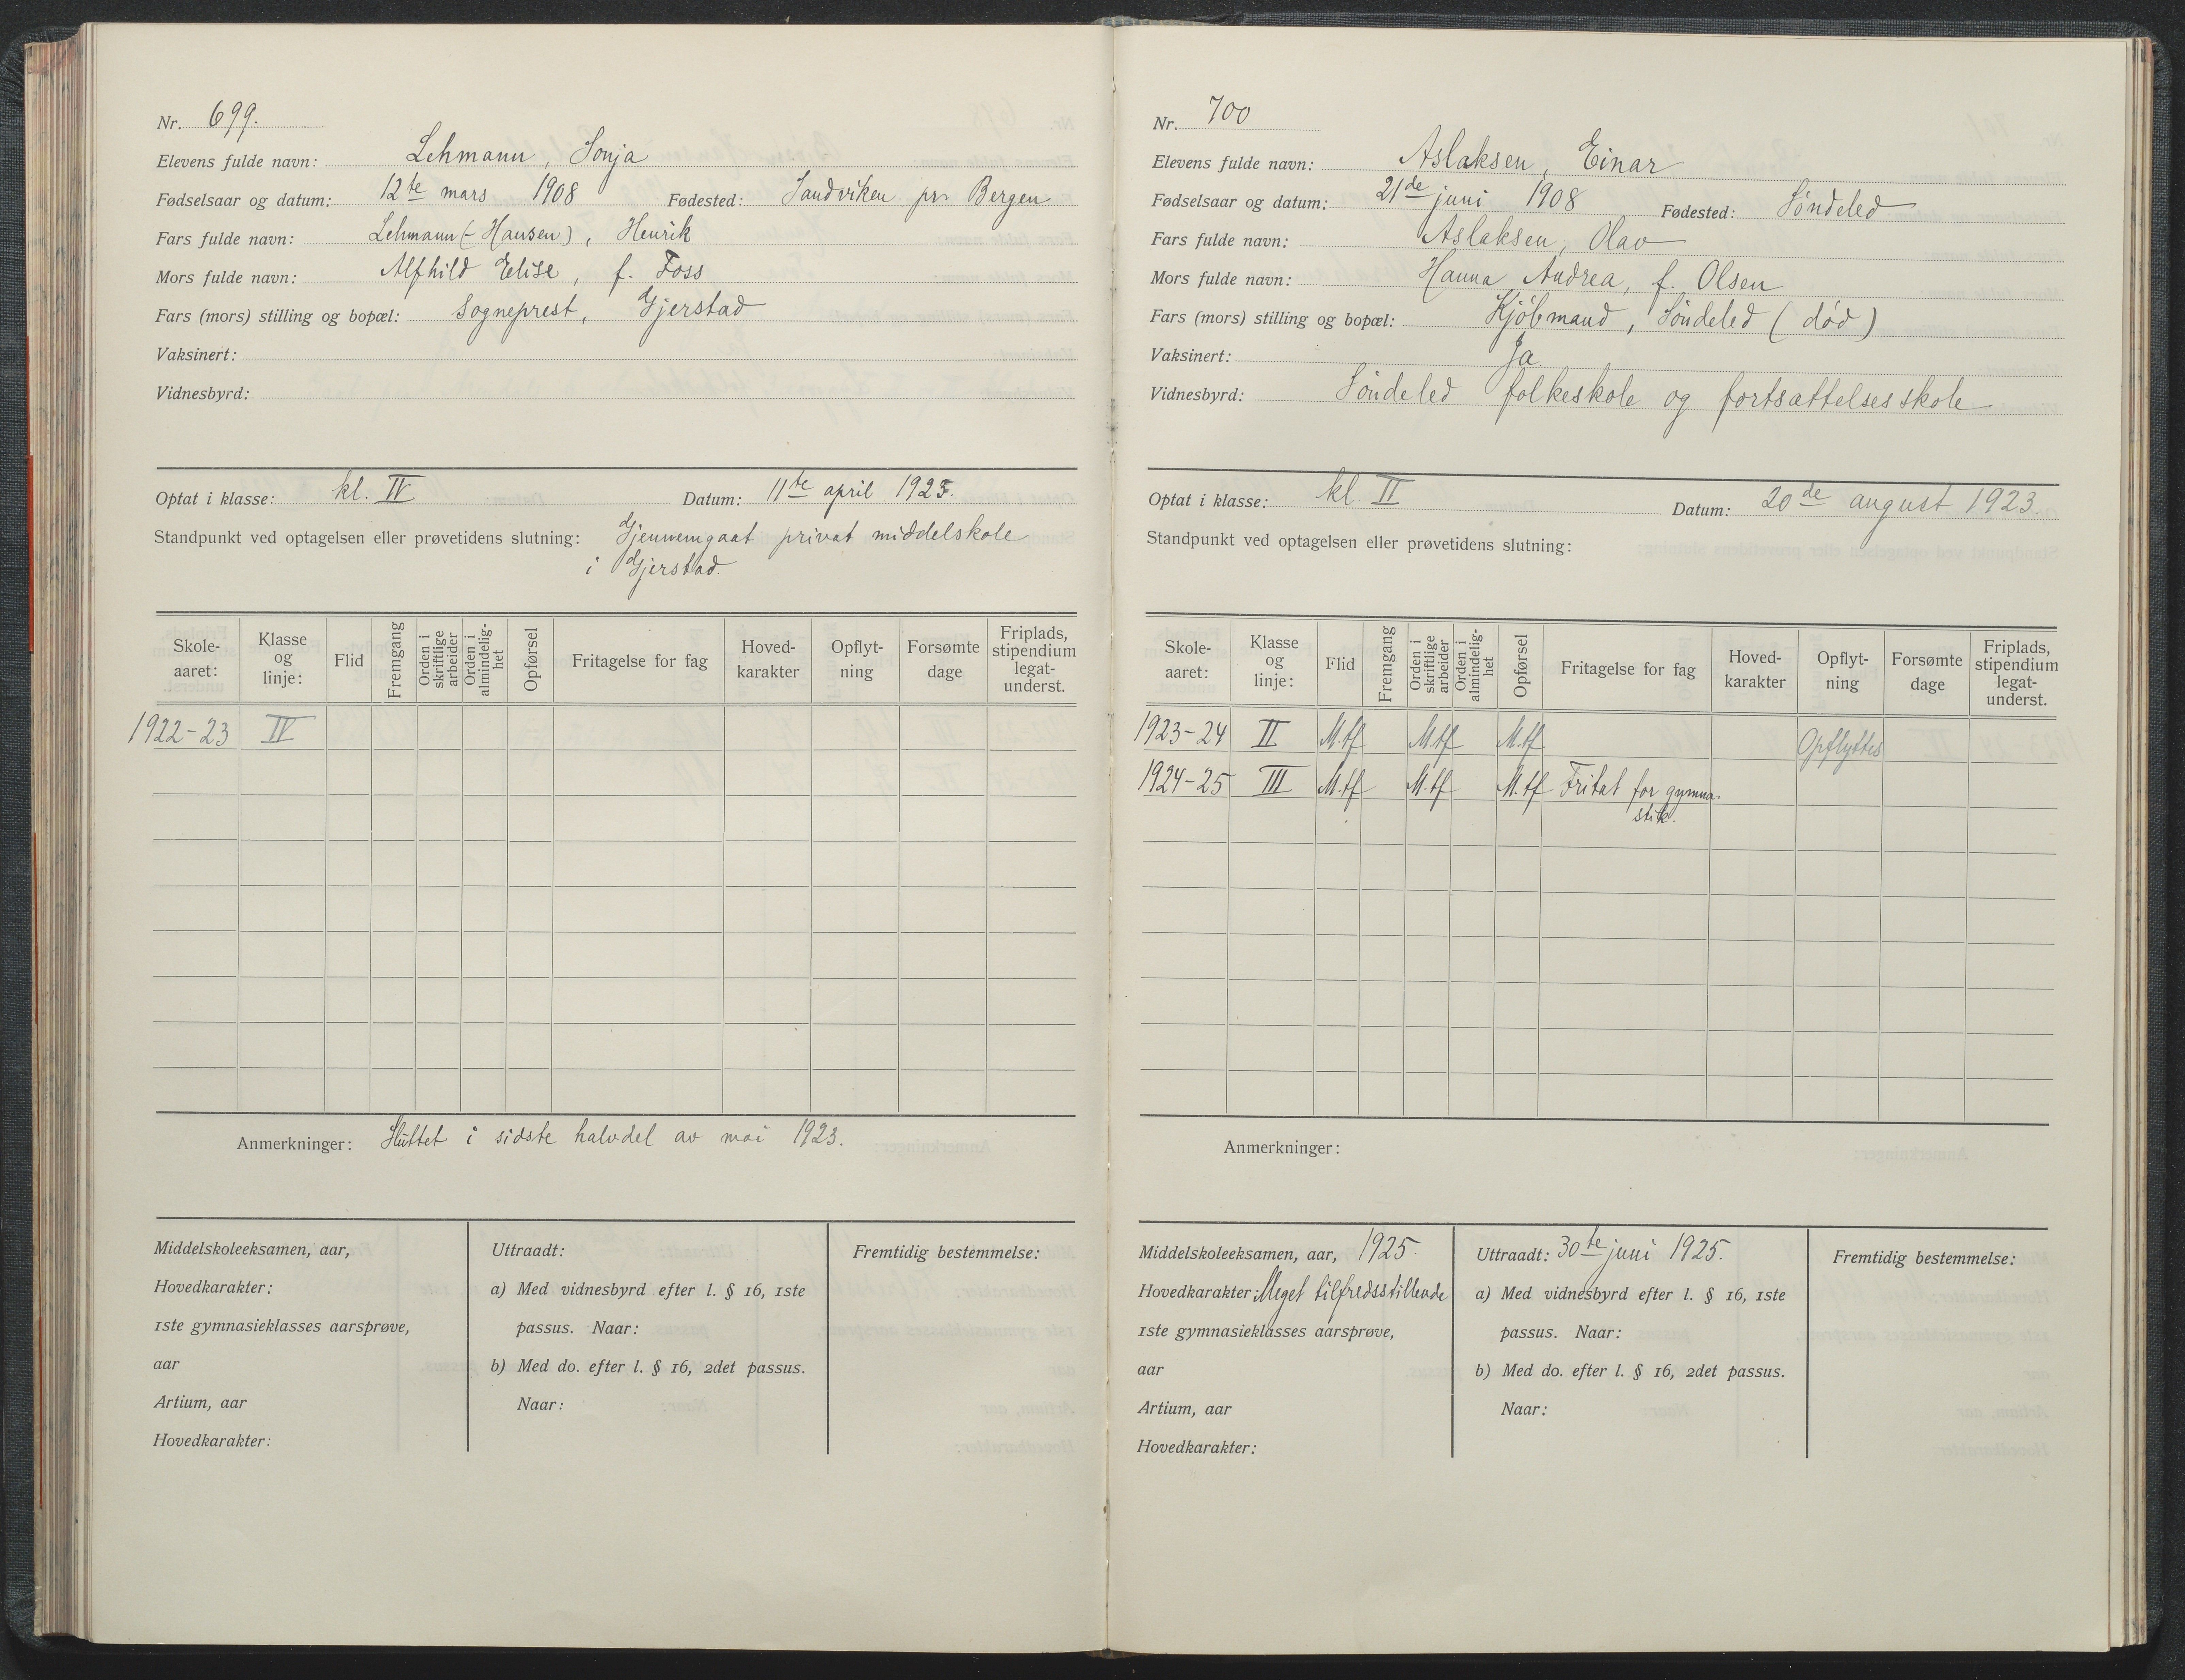 Nr. 699.
Elevens fulde navn: Lehmann, Sonja
Fødselsaar og datum: 12te mars 1908 Fødested: Sandviken pr. Bergen
Fars fulde navn: Lehmann (-Hansen), Henrik
Mors fulde navn: Alfhild Elise, f. Foss
Fars (mors) stilling og bopæl: Sogneprest, Gjerstad
Vaksinert:
Vidnesbyrd:
Optat i klasse: kl. IV Datum: 11te april 1923.
Standpunkt ved optagelsen eller prøvetidens slutning: Gjennemgaat privat middelskole
i Gjerstad.
Skole-aaret: Klasse og linje: Flid Fremgang Orden i skriftlige arbeider Orden i almindelig-het Opførsel Fritagelse for fag Hoved-karakter Opflyt-ning Forsømte dage Friplads, stipendium legat-underst.
1922-23 IV
Anmerkninger: Sluttet i sidste halvdel av mai 1923.
Middelskoleeksamen, aar,
Hovedkarakter:
1ste gymnasieklasses aarsprøve,
aar
Artium, aar
Hovedkarakter:
Uttraadt:
a) Med vidnesbyrd efter l. § 16, 1ste
passus. Naar:
b) Med do. efter l. § 16, 2det passus.
Naar:
Fremtidig bestemmelse:
Nr. 700
Elevens fulde navn: Aslaksen, Einar
Fødselsaar og datum: 21de juni 1908 Fødested: Søndeled
Fars fulde navn: Aslaksen, Olav
Mors fulde navn: Hanna Andrea, f. Olsen
Fars (mors) stilling og bopæl: Kjøbmand, Søndeled (død)
Vaksinert: Ja
Vidnesbyrd: Søndeled folkeskole og fortsættelsesskole
Optat i klasse: kl. II Datum: 20de august 1923.
Standpunkt ved optagelsen eller prøvetidens slutning:
Skole-aaret: Klasse og linje: Flid Fremgang Orden i skriftlige arbeider Orden i almindelig-het Opførsel Fritagelse for fag Hoved-karakter Opflyt-ning Forsømte dage Friplads, stipendium legat-underst.
1923-24 II M.tf M.tf M.tf Opflyttes
1924-25 III M.tf M.tf M.tf Fritat for gymna-
stik.
Anmerkninger:
Middelskoleeksamen, aar, 1925.
Hovedkarakter: Meget tilfredsstillende
1ste gymnasieklasses aarsprøve,
aar
Artium, aar
Hovedkarakter:
Uttraadt: 30te juni 1925.
a) Med vidnesbyrd efter l. § 16, 1ste
passus. Naar:
b) Med do. efter l. § 16, 2det passus.
Naar:
Fremtidig bestemmelse: